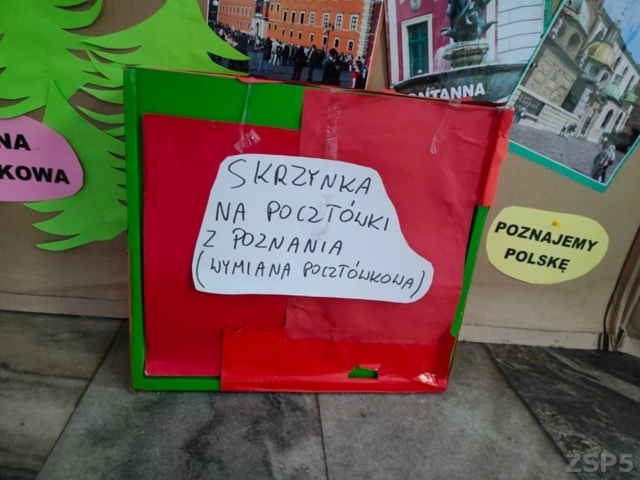 ANTANNA
NA
KOWA
SKRZYNKA
NA POCZTÓWKI
Z POZNANIA
(WYMIANA POCZTÓWKOWA)
POZNAJEMY
POLSKĘ
ZSP5